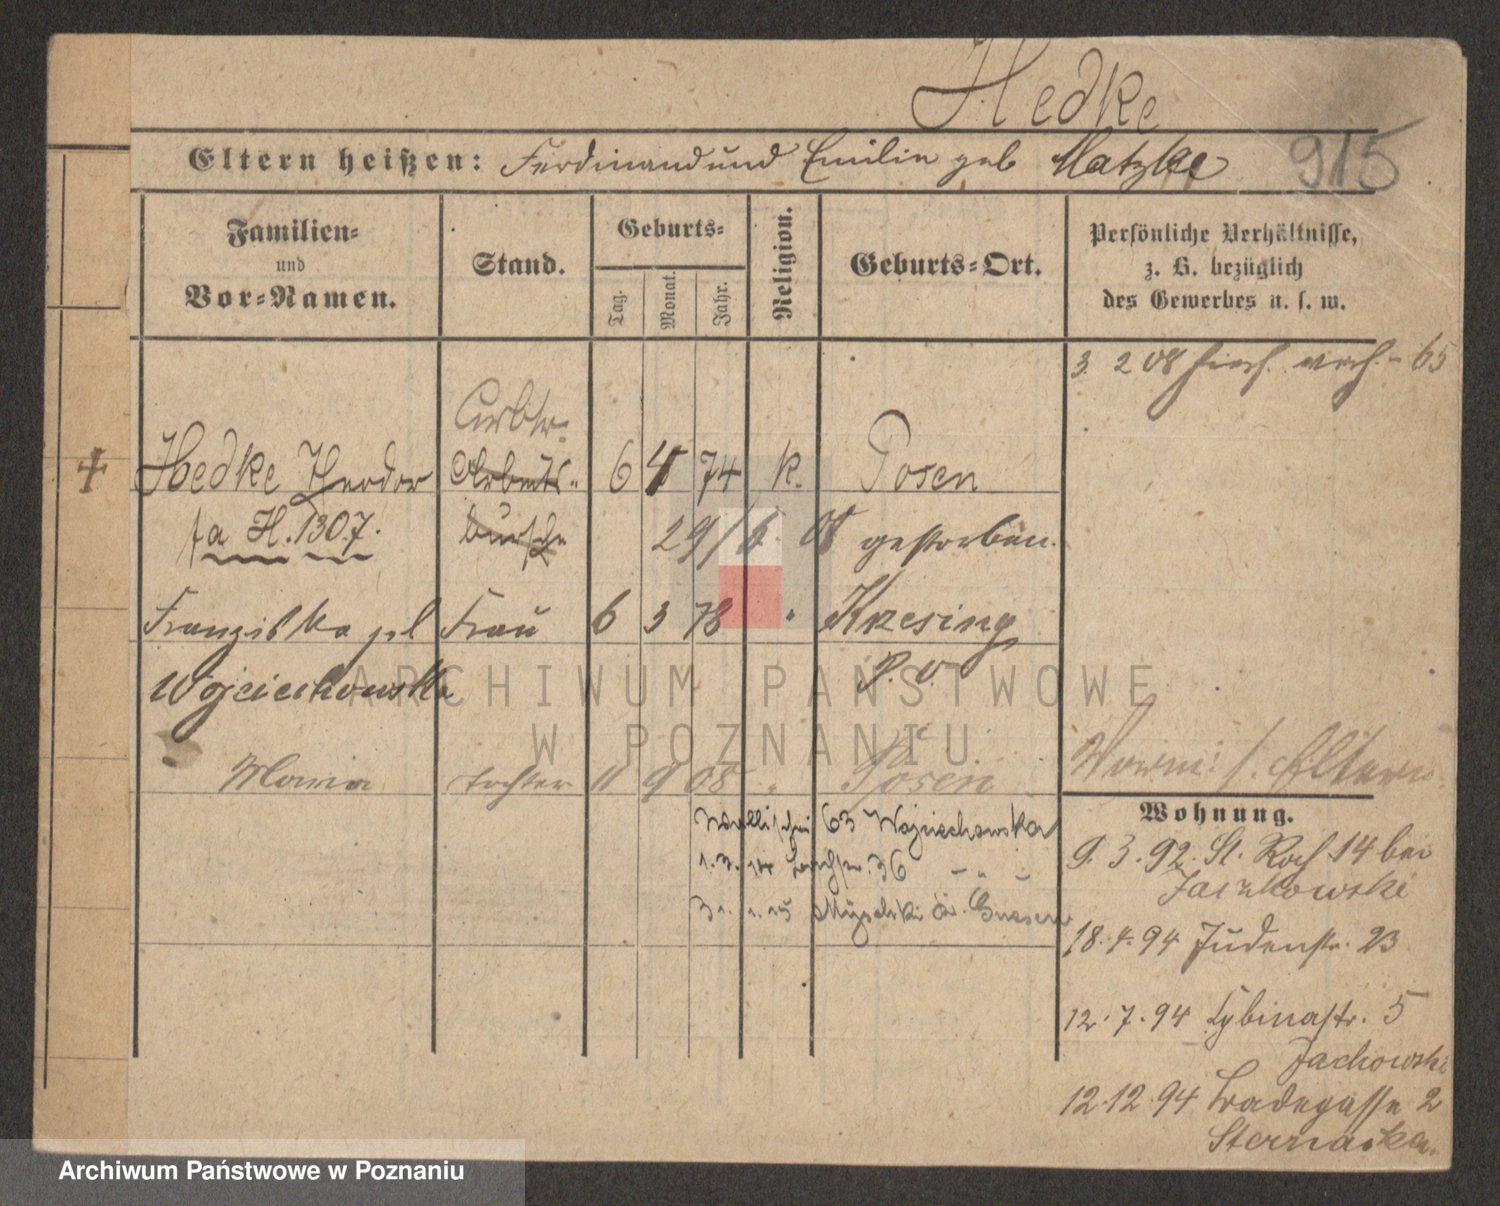 Hedke
Eltern heißen: Ferdinand und Emilie geb Matzke 915
Familien-
und
Vor-Namen.
Stand.
Geburts-
Tag.
Monat.
Jahr.
Religion.
Geburts-Ort.
Persönliche Verhältnisse,
z. B. bezüglich
des Gewerbes u. s. w.
3. 2 08 65
Arbtr.
Hedke Theodor Arbeits- 6 4 74 k. Posen
fa H. 1307. bursche
29/6 08 gestorben.
Franziska Frau 6 3 78 " Krzesing
Wojciechowska P. O.
Maria Tochter 11 9 08 " Posen
Eltern
Wohnung.
Wallischei 63 Wojciechowska
36 - " -
31. 1. 15 Gnesen
9. 3. 92. St. Roch 14 bei
Jaczkowski
18. 4. 94 Judenstr. 23
12. 7. 94 Cybinastr. 5
Jachowski
12. 12. 94 Badegasse 2
ARCHIWUM PAŃSTWOWE
W POZNANIU
Archiwum Państwowe w Poznaniu